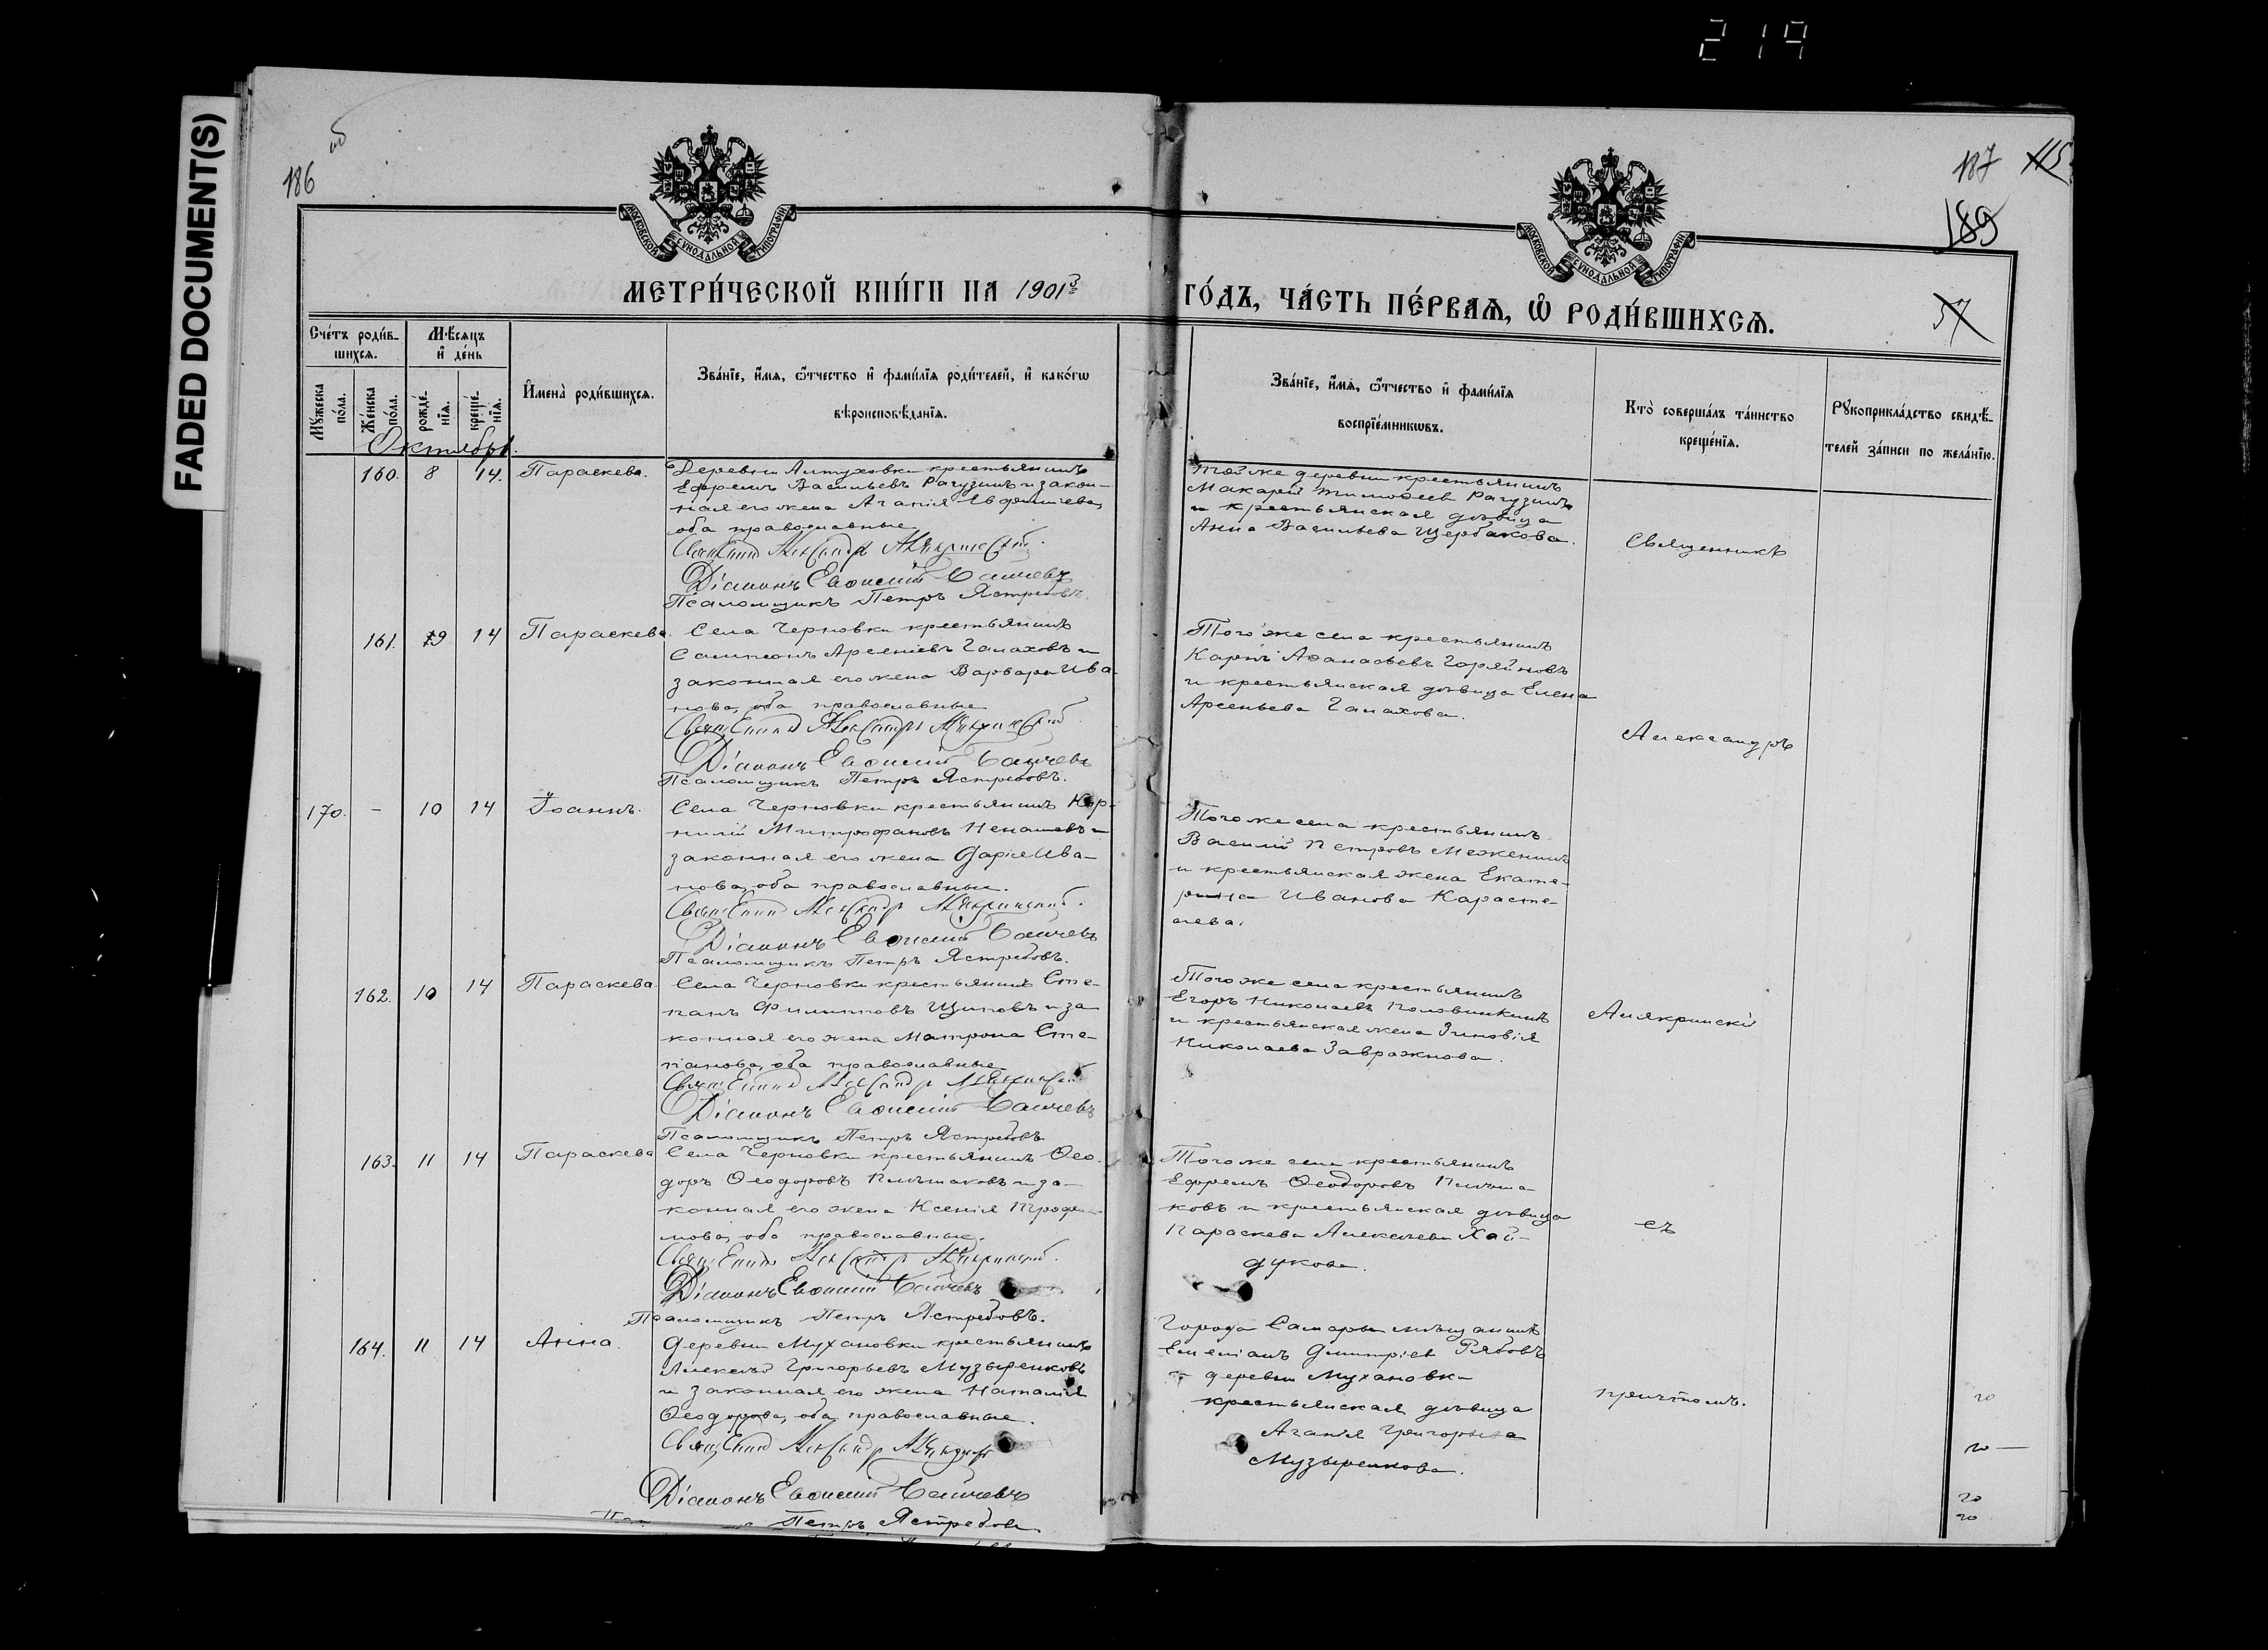 219
FADED DOCUMENT(S)
186
об
187 115
189
57
МОСКОВСКОЙ СѴНОДАЛЬНОЙ ТИПОГРАФІИ
МОСКОВСКОЙ СѴНОДАЛЬНОЙ ТИПОГРАФІИ
МЕТРИ́ЧЕСКОЙ КНИ́ГИ НА 1901й ГО́ДЪ, ЧА́СТЬ ПЕ́РВАѦ, Ѽ РОДИ́ВШИХСѦ.
Сче́тъ роди́в-
шихсѧ.
Мꙋ́жеска по́ла.
Же́нска по́ла.
Мѣ́сѧцъ и҆ де́нь
рожде́-нїѧ.
креще́-нїѧ.
И҆мена̀ роди́вшихсѧ.
Зва́нїе, и҆́мѧ, ѻ҆́тчество и҆ фами́лїѧ роди́телей, и҆ како́гѡ
вѣроисповѣ́данїѧ.
Зва́нїе, и҆́мѧ, ѻ҆́тчество и҆ фами́лїѧ
воспрїе́мникѡвъ.
Кто̀ соверша́лъ та́инство
креще́нїѧ.
Рꙋкоприкла́дство свидѣ́-
телей за́писи по жела́нїю.
Октябрь.
160. 8 14. Параскева.
Деревни Алтуховки крестьянинъ
Ефремъ Васильевъ Рагузинъ и закон-
ная его жена Агапія Евфиміева,
оба православные
Священникъ Александръ Алякринскій.
Діаконъ Евѳимій
Псаломщикъ Петръ Ястребовъ.
Той же деревни крестьянинъ
Макарій Тимоѳеевъ Рагузинъ
и крестьянская дѣвица
Анна Васильева Щербакова.
Священникъ
161. 9 14 Параскева.
Села Черновки крестьянинъ
Сампсонъ Арсеніевъ Галаховъ и
законная его жена Варвара Ива-
нова, оба православные
Священникъ Александръ Алякринскій
Діаконъ Евѳимій
Псаломщикъ Петръ Ястребовъ.
Того же села крестьянинъ
Карпъ Аѳанасьевъ Горяйновъ
и крестьянская дѣвица Елена
Арсеньева Галахова.
Александръ
170. - 10 14 Іоаннъ.
Села Черновки крестьянинъ Кор-
нилій Митрофановъ Ненашевъ и
законная его жена Дарія Ива-
нова, оба православные.
Священникъ Александръ Алякринскій.
Діаконъ Евѳимій
Псаломщикъ Петръ Ястребовъ.
Того же села крестьянинъ
Василій Петровъ Меженинъ
и крестьянская жена Екате-
рина Иванова Карасте-
лева.
162. 10 14 Параскева
Села Черновки крестьянинъ Сте-
панъ Филипповъ Щиповъ и за-
конная его жена Матрона Сте-
панова, оба православные
Священникъ Александръ Алякринскій
Діаконъ Евѳимій
Псаломщикъ Петръ Ястребовъ
Того же села крестьянинъ
Егоръ Николаевъ Половинкинъ
и крестьянская жена Зиновія
Николаева Завражнова.
Алякринскій
163. 11 14 Параскева
Села Черновки крестьянинъ Ѳео-
доръ Ѳеодоровъ Плѣшаковъ и за-
конная его жена Ксенія Трофи-
мова, оба православные.
Священникъ Александръ Алякринскій.
Діаконъ Евѳимій
Псаломщикъ Петръ Ястребовъ.
Того же села крестьянинъ
Ефремъ Ѳеодоровъ Плѣша-
ковъ и крестьянская дѣвица
Параскева Алексѣева Хай-
дукова.
съ
164. 11 14 Анна.
Деревни Мухановки крестьянинъ
Алексѣй Григорьевъ Музыренковъ
и законная его жена Наталія
Ѳеодорова, оба православные.
Священникъ Александръ
Діаконъ Евѳимій
Петръ Ястребовъ
Города Самары мѣщанинъ
Емеліанъ Дмитріевъ Рябовъ
и деревни Мухановки
крестьянская дѣвица
Агапія Григорьева
Музыренкова.
причтомъ.